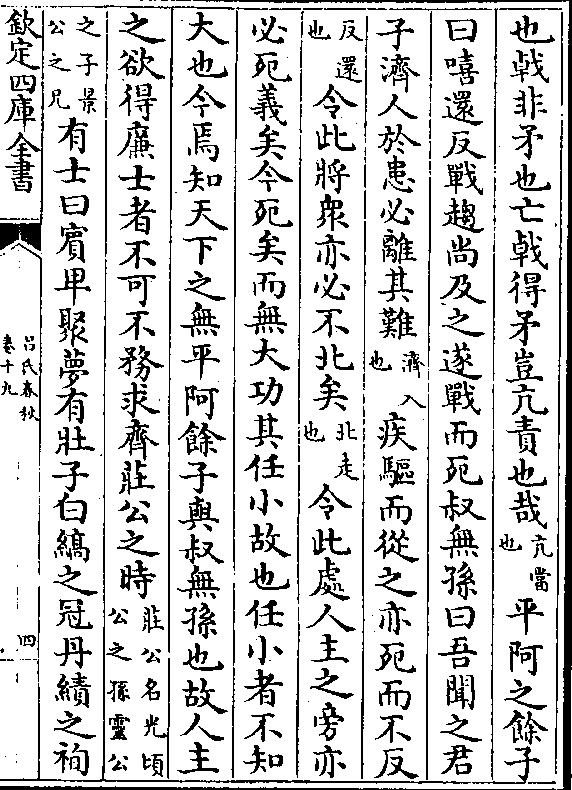 也戟非矛也亡戟得矛豈亢責也哉亢當也平阿之餘子
曰嘻還反戰趨尚及之遂戰而死叔無孫曰吾聞之君
子濟人於患必離其難濟入也疾驅而從之亦死而不反
反還也令此將衆亦必不北矣北走也令此處人主之旁亦
必死義矣今死矣而無大功其任小故也任小者不知
大也今焉知天下之無平阿餘子與叔無孫也故人主
之欲得廉士者不可不務求齊莊公之時莊公名光頃公之孫靈公
之子景公之兄有士曰賓卑聚夢有壯子白縞之冠丹績之袧
欽定四庫全書
吕氏春秋
卷十九
四